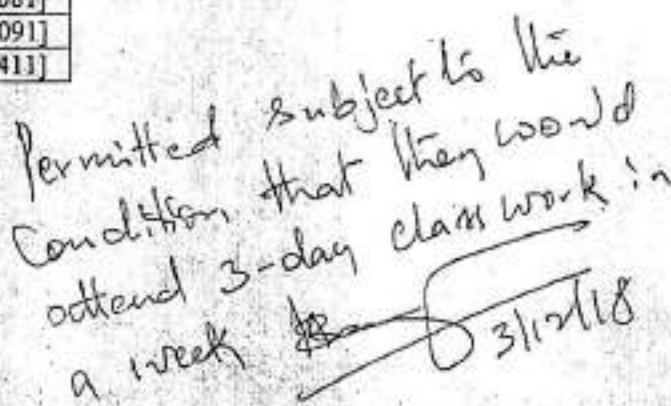 091]
411]
Permitted subject to the
condition that they would
attend 3-day class work in
a week
3/12/18